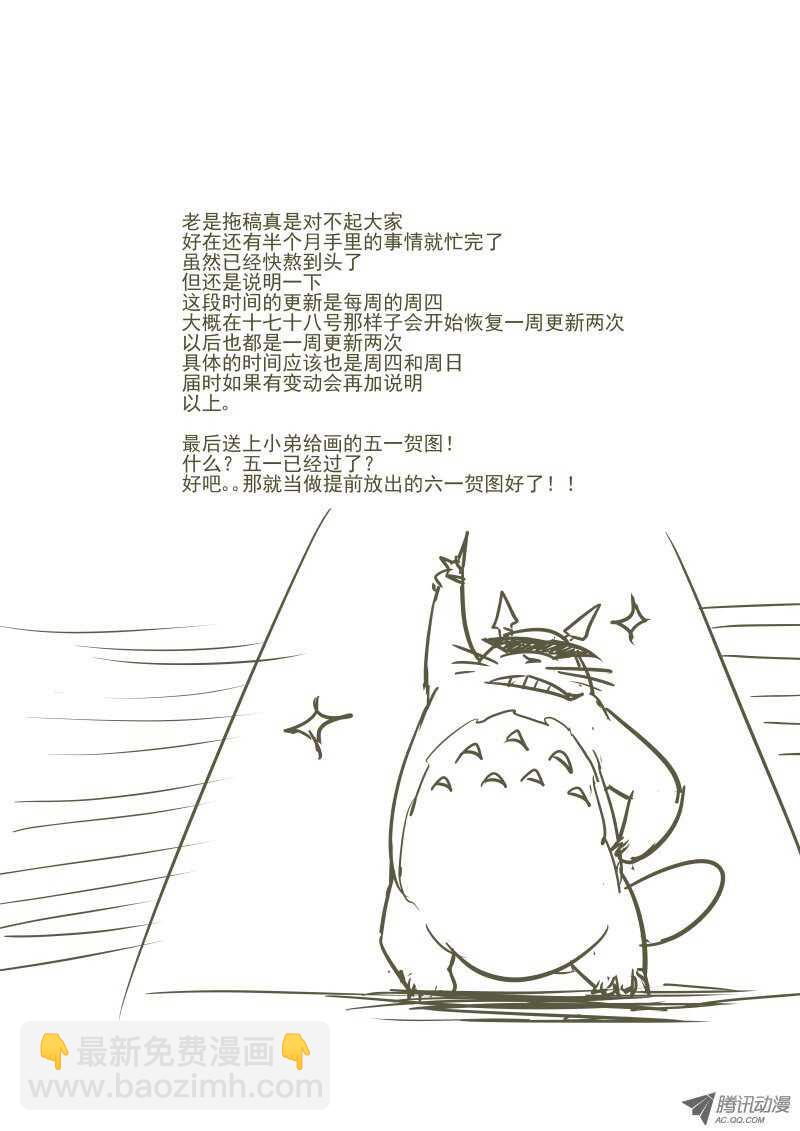 老是拖稿真是对不起大家
好在还有半个月手里的事情就忙完了
虽然已经快熬到头了
但还是说明一下
这段时间的更新是每周的周四
大概在十七十八号那样子会开始恢复一周更新两次
以后也都是一周更新两次
具体的时间应该也是周四和周日
届时如果有变动会再加说明
以上。
最后送上小弟给画的五一贺图！
什么？五一已经过了？
好吧。。那就当做提前放出的六一贺图好了！！
👇最新免费漫画👇
www.baozimh.com
腾讯动漫
AC.QQ.COM